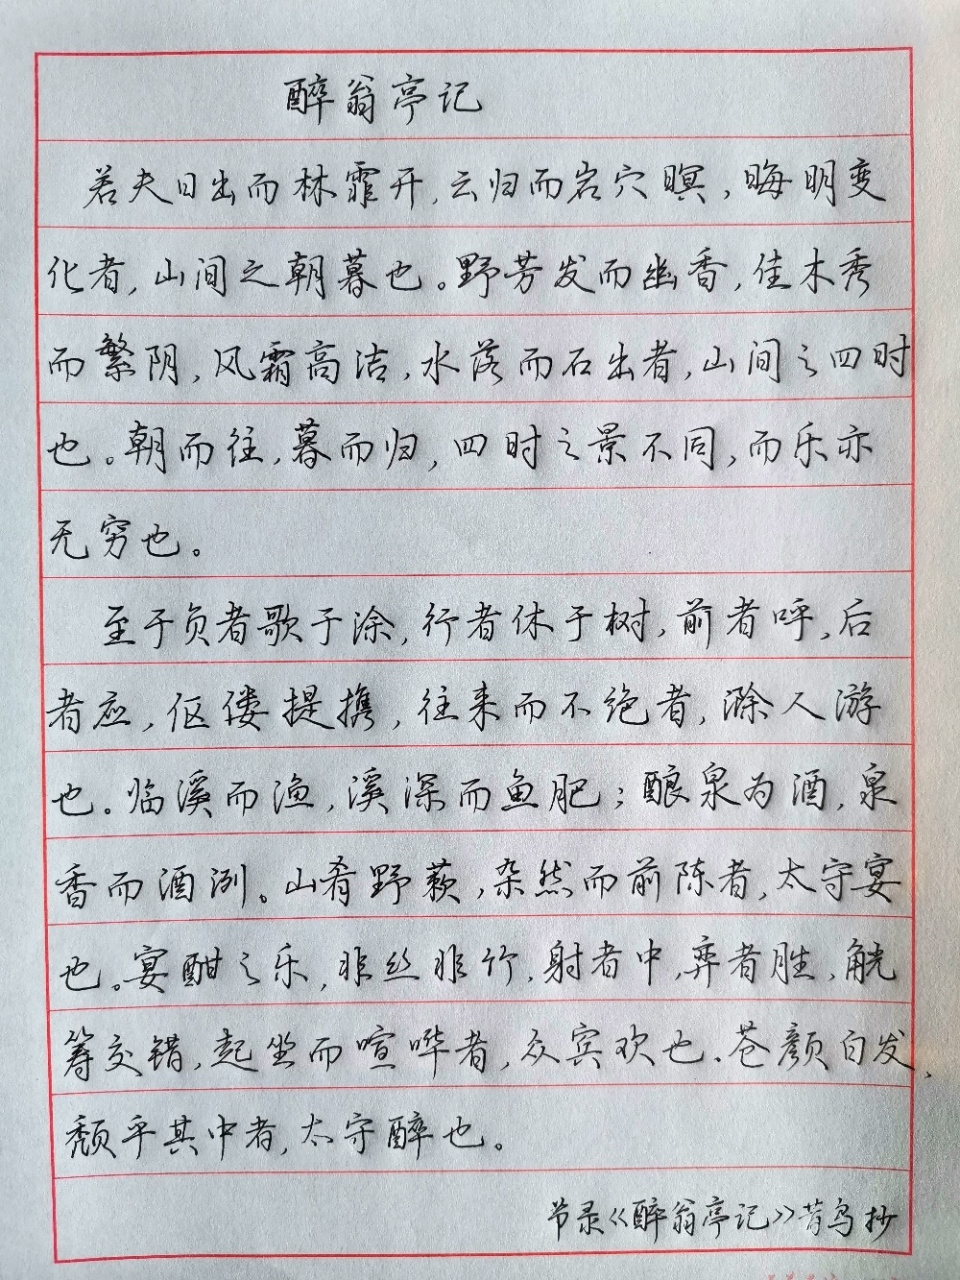 醉翁亭记
若夫日出而林霏开,云归而岩穴暝,晦明变
化者,山间之朝暮也。野芳发而幽香,佳木秀
而繁阴,风霜高洁,水落而石出者,山间之四时
也。朝而往,暮而归,四时之景不同,而乐亦
无穷也。
至于负者歌于涂,行者休于树,前者呼,后
者应,伛偻提携,往来而不绝者,滁人游
也。临溪而渔,溪深而鱼肥;酿泉为酒,泉
香而酒洌。山肴野蔌,杂然而前陈者,太守宴
也。宴酣之乐,非丝非竹,射者中,弈者胜,觥
筹交错,起坐而喧哗者,众宾欢也.苍颜白发,
颓乎其中者,太守醉也。
节录《醉翁亭记》 抄